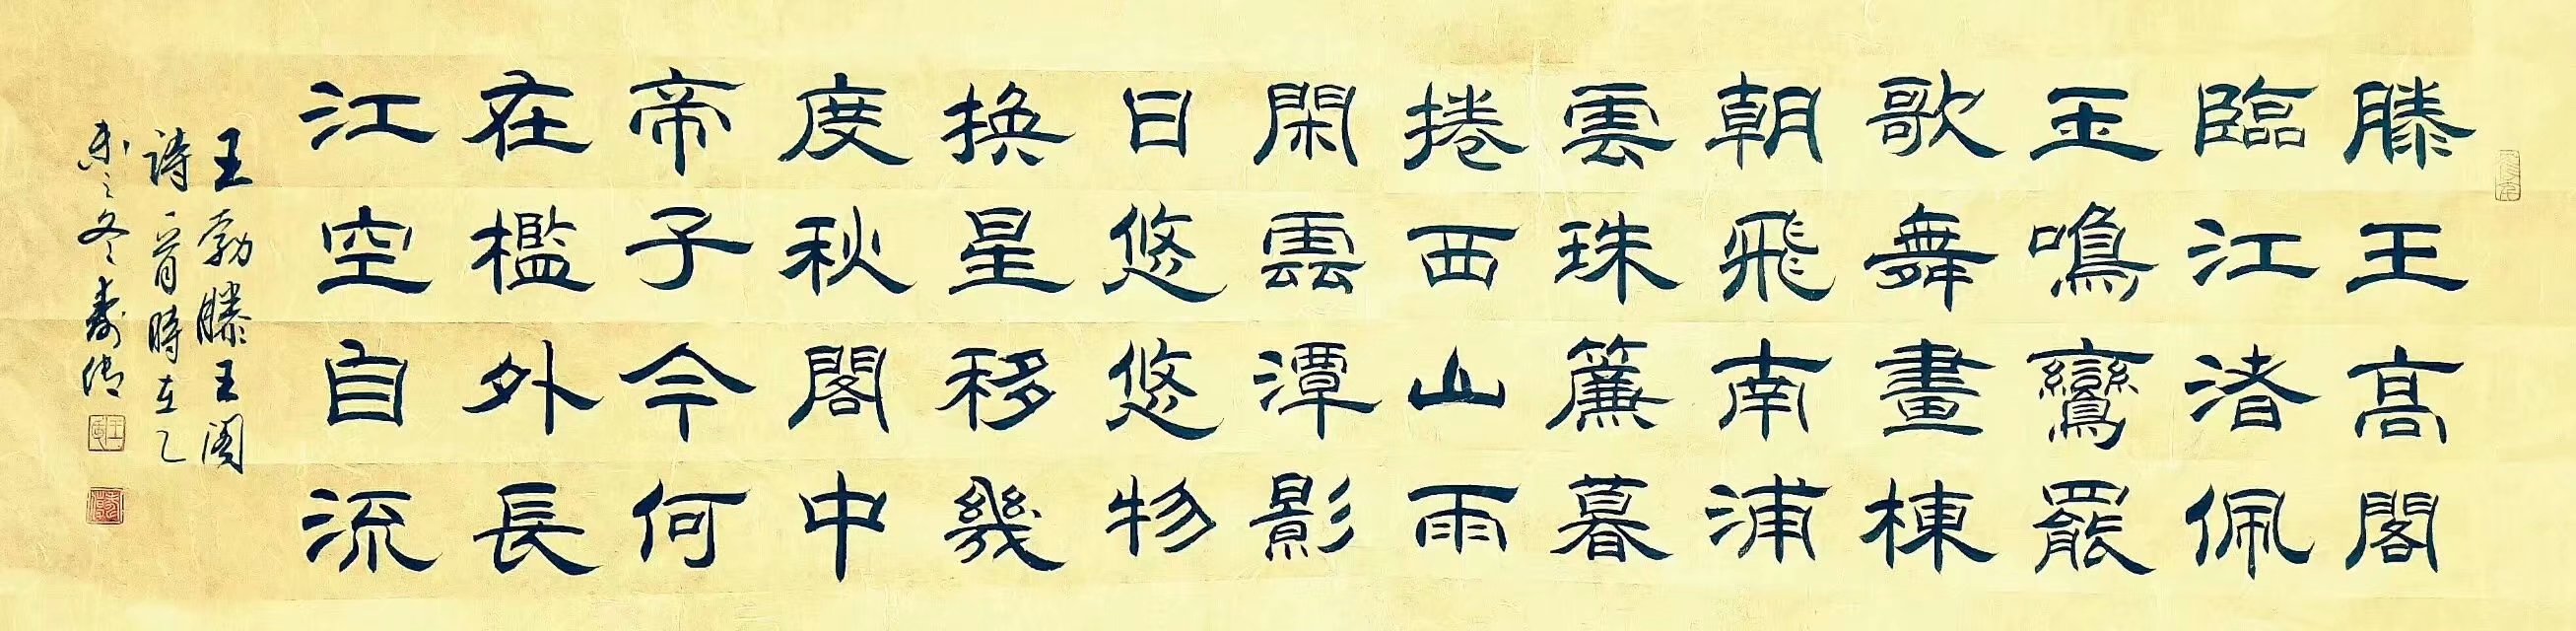 滕王高閣
臨江渚佩
玉鳴鸞罷
歌舞畫棟
朝飛南浦
雲珠簾暮
捲西山雨
閑雲潭影
日悠悠物
換星移幾
度秋閣中
帝子今何
在檻外長
江空自流
王勃滕王閣
詩一首時在乙
未之冬壽傳